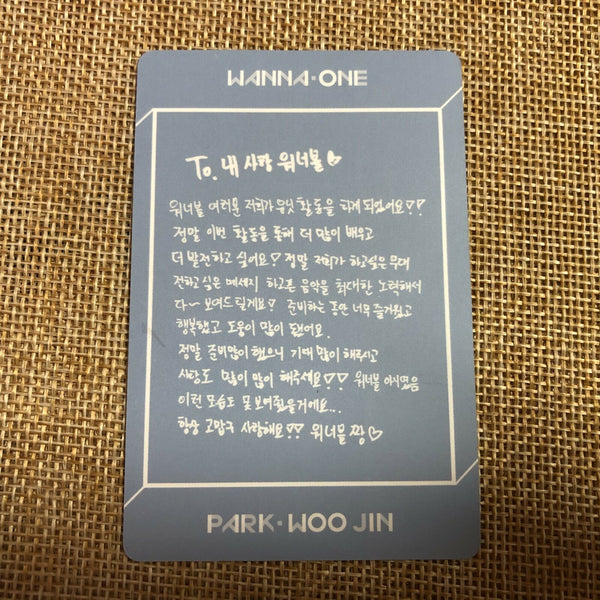 WANNA·ONE
To. 내 사랑 워너블♡
워너블 여러분 저희가 유닛 활동을 하게 되었어요!!
정말 이번 활동을 통해 더 많이 배우고
더 발전하고 싶어요! 정말 저희가 하고싶은 무대
전하고 싶은 메세지 하고픈 음악을 최대한 노력해서
다~ 보여드릴게요! 준비하는 동안 너무 즐거웠고
행복했고 도움이 많이 됐어요.
정말 준비많이 했으니 기대 많이 해주시고
사랑도 많이 많이 해주세요!! 워너블 아니였음
이런 모습도 못보여줬을거에요...
항상 고맙구 사랑해요!! 워너블 짱♡
PARK·WOO JIN